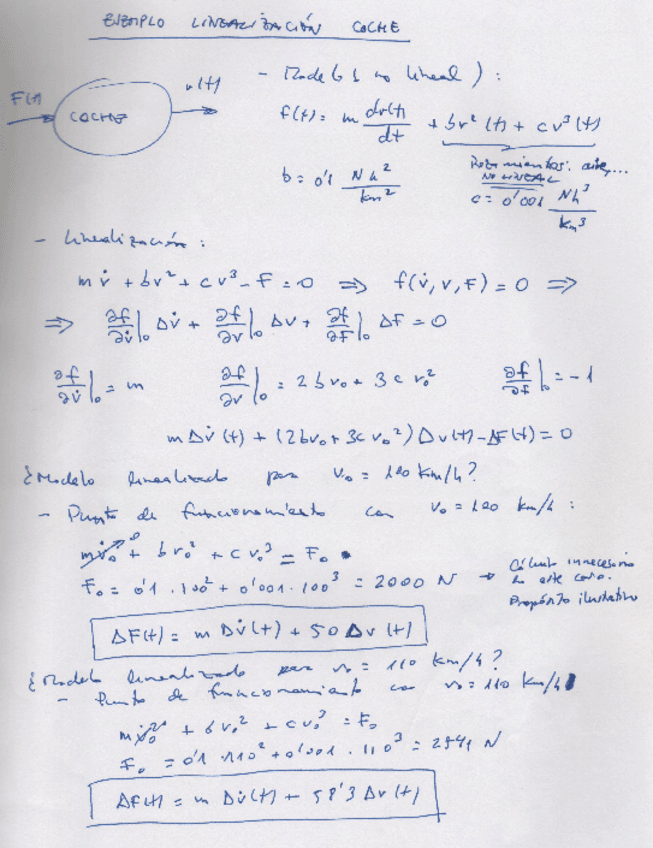 EJEMPLO LINEALIZACIÓN COCHE
- Modelo (no lineal):
F(t)
COCHE
v(t)
f(t) = m dv(t)/dt + bv²(t) + cv³(t)
Rozamientos: aire,...
NO LINEAL
b = 0'1 N h²/km²
c = 0'001 Nh³/km³
- Linealización:
m v̇ + bv² + cv³ - F = 0 ⇒ f(v̇, v, F) = 0 ⇒
⇒ ∂f/∂v̇|₀ Δv̇ + ∂f/∂v|₀ Δv + ∂f/∂F|₀ ΔF = 0
∂f/∂v̇|₀ = m ∂f/∂v|₀ = 2bv₀ + 3cv₀² ∂f/∂f|₀ = -1
mΔv̇(t) + (2bv₀ + 3cv₀²)Δv(t) - ΔF(t) = 0
¿Modelo linealizado para v₀ = 100 km/h?
- Punto de funcionamiento con v₀ = 100 km/h:
mv̇₀ ⁰ + bv₀² + cv₀³ = F₀
F₀ = 0'1 · 100² + 0'001 · 100³ = 2000 N → Cálculo innecesario
en este caso.
Propósito ilustrativo
ΔF(t) = m Δv̇(t) + 50 Δv(t)
¿Modelo linealizado para v₀ = 110 km/h?
- Punto de funcionamiento con v₀ = 110 km/h
mv̇₀ ⁰ + bv₀² + cv₀³ = F₀
F₀ = 0'1 · 110² + 0'001 · 110³ = 2541 N
ΔF(t) = m Δv̇(t) + 58'3 Δv(t)